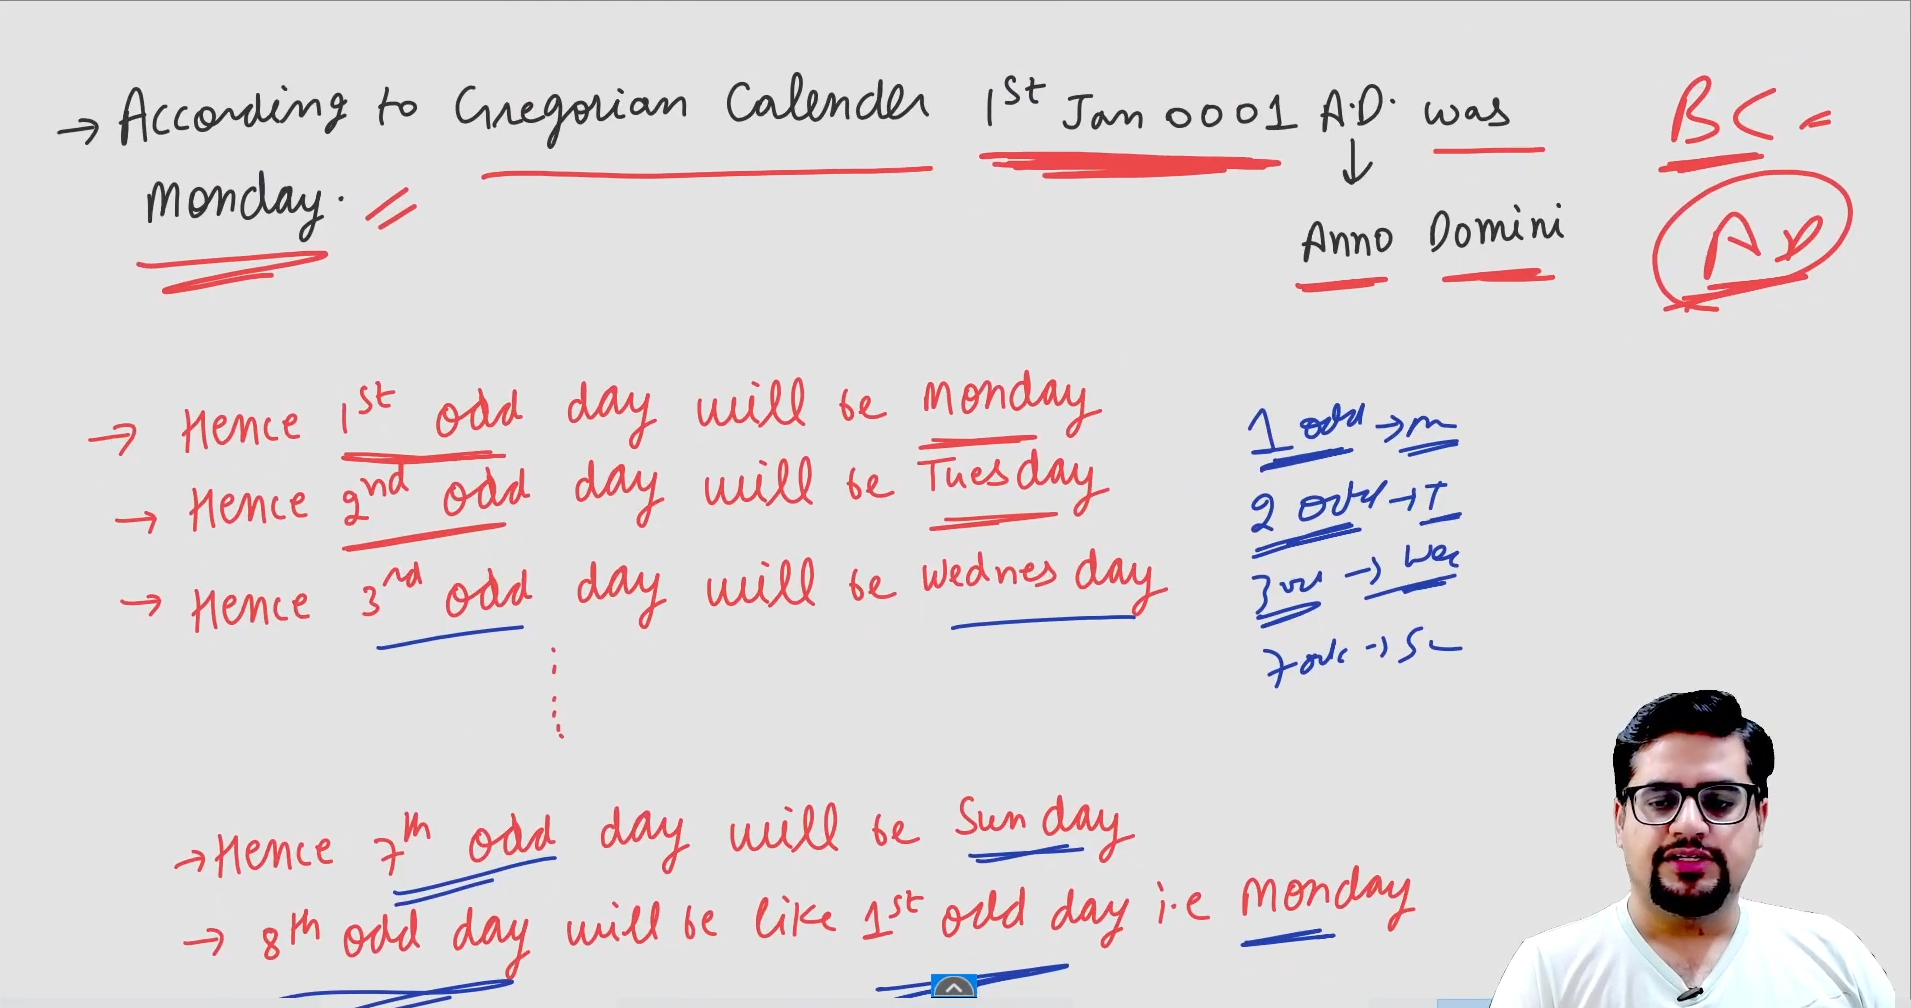 → According to Gregorian Calender 1st Jan 0001 A.D. was
Monday.
↓
Anno Domini
BC =
AD
→ Hence 1st odd day will be Monday
→ Hence 2nd odd day will be Tuesday
→ Hence 3rd odd day will be Wednesday
1 odd → m
2 odd → T
3 → Wed
7 odd →
→ Hence 7th odd day will be Sunday
→ 8th odd day will be like 1st odd day i.e Monday